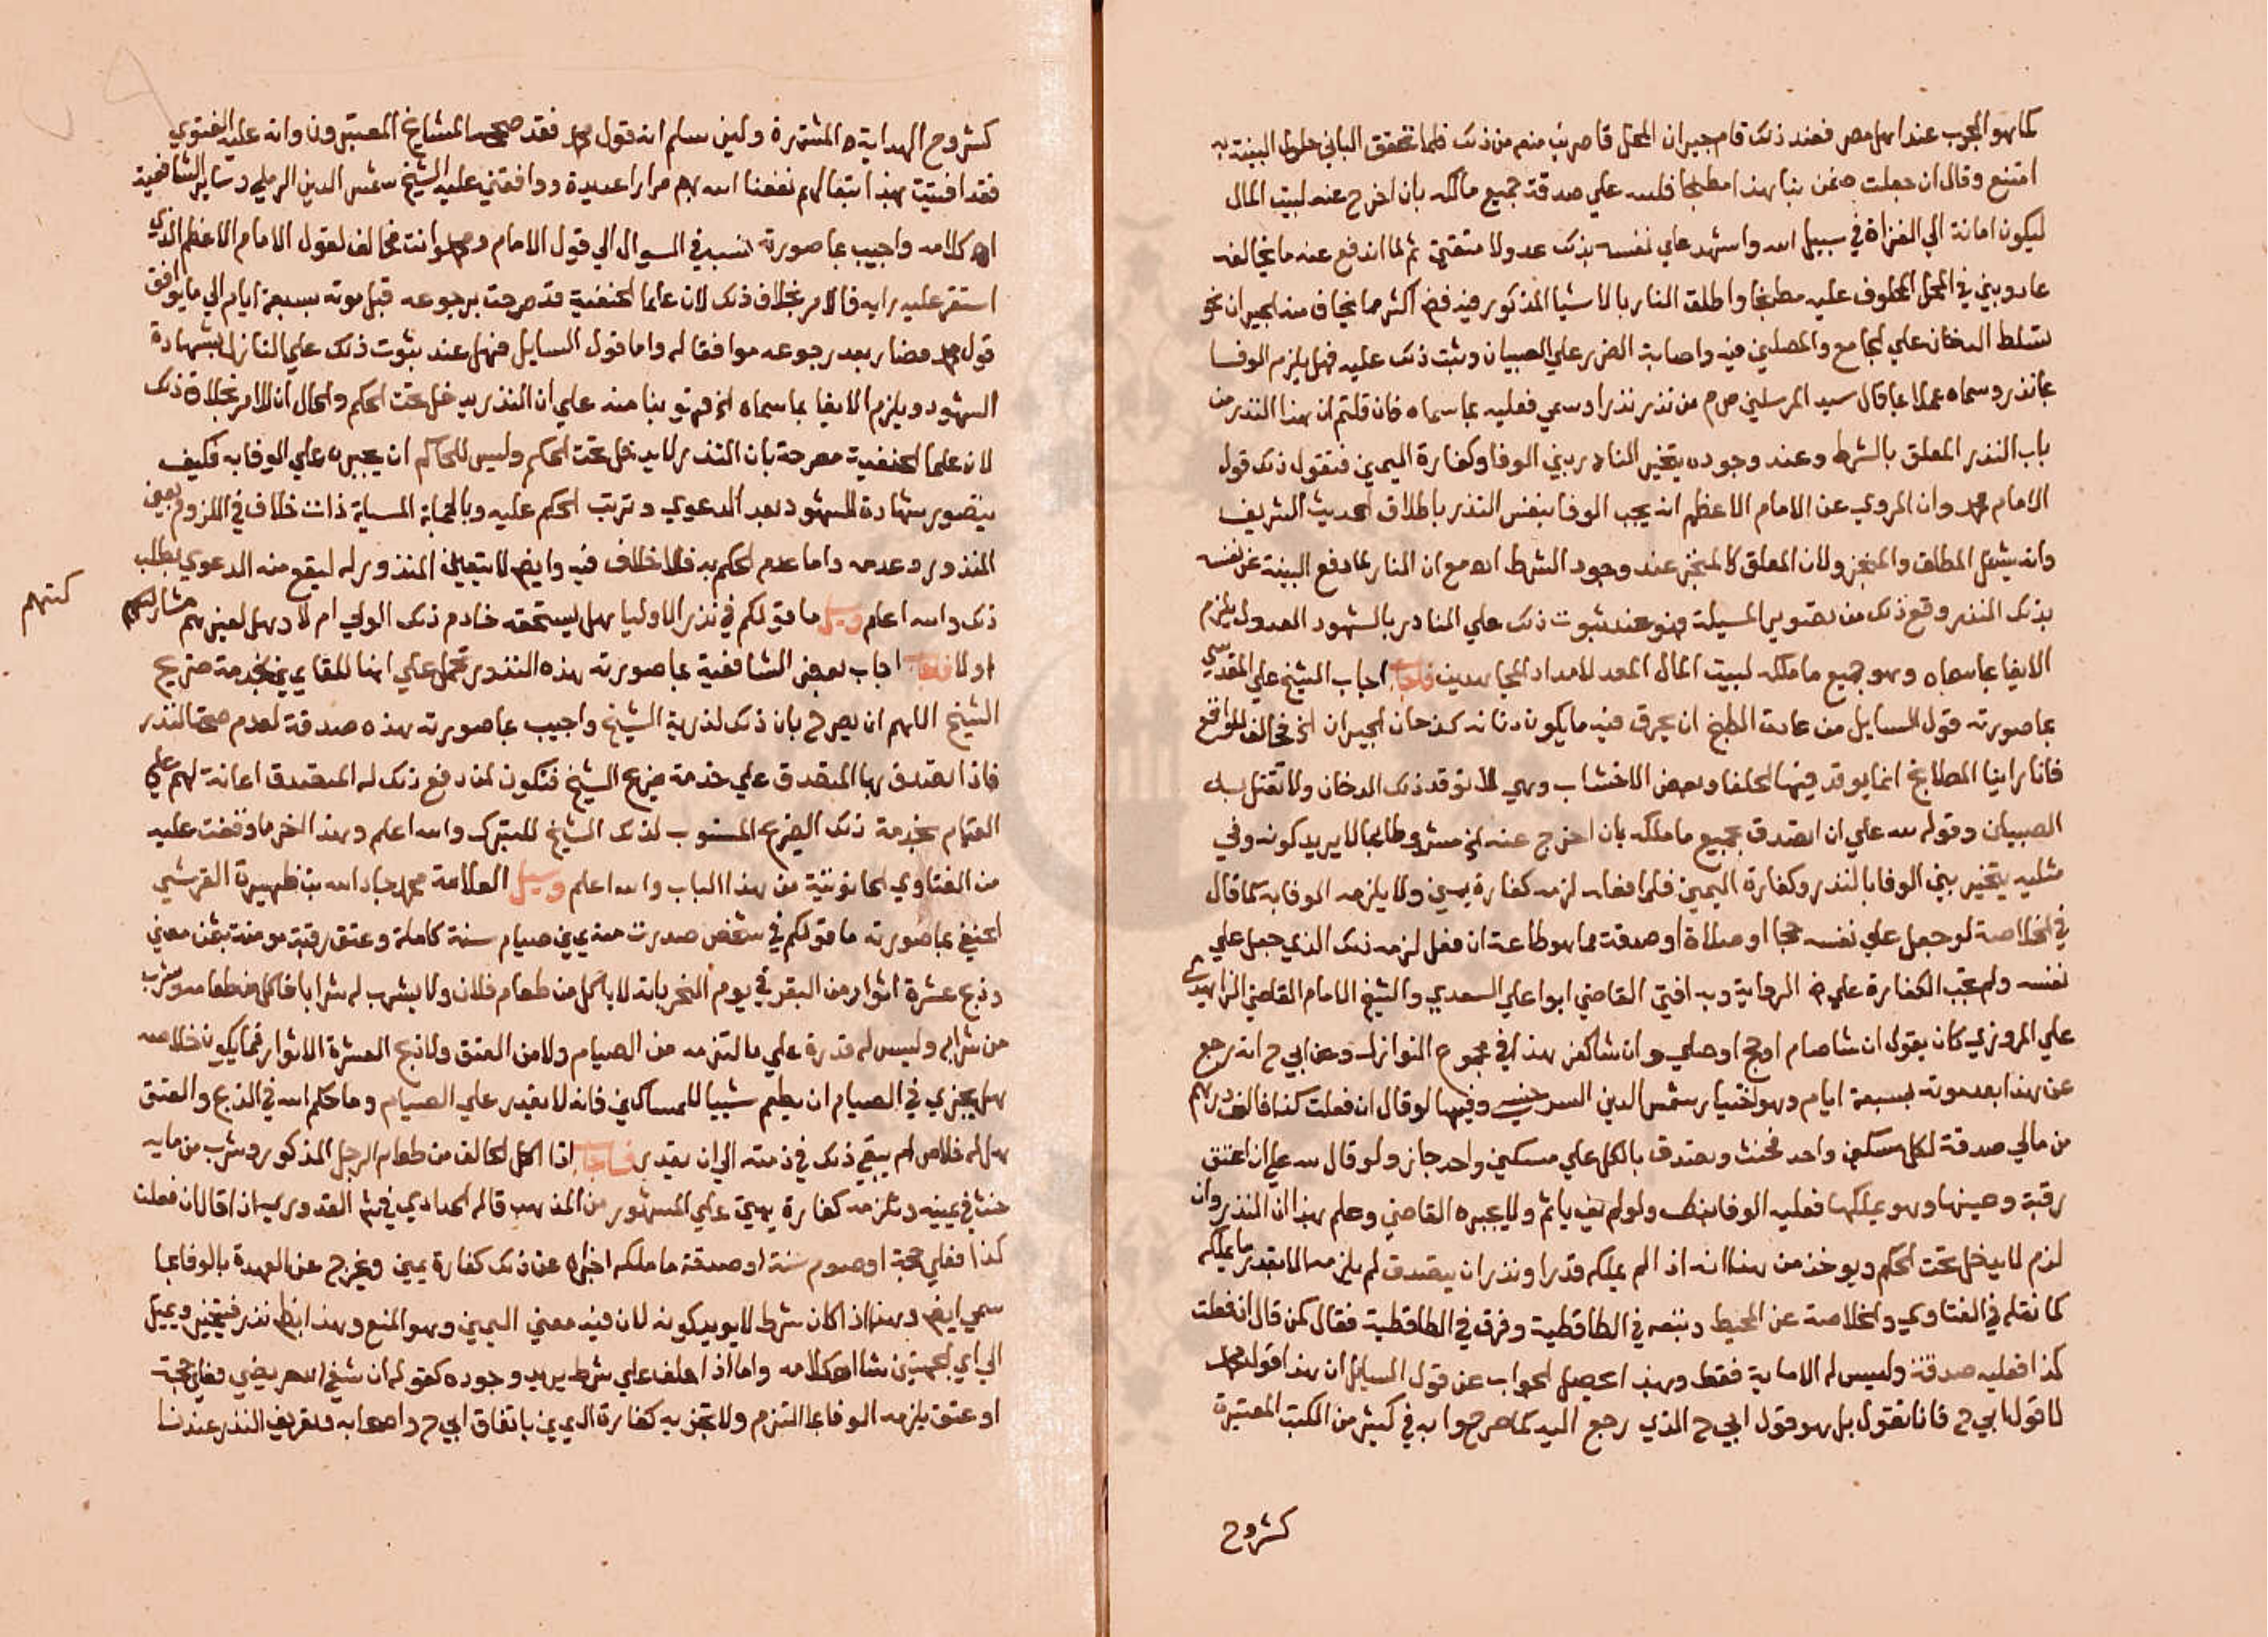 كما هو المجرب عند اهل مصر فعند ذلك قام جيران المحل قاصدين منعه من ذلك فلما تحقق الباني حلول البينة به
امتنع وقال ان جعلت ضمن بنا هذا مطبخا فلله علي صدقة جميع ما املكه بان اخرج عنه لبيت المال
ليكون امانة الي الغزاة في سبيل الله واشهد علي نفسه بذلك عدولا متقنين ثم لما اندفع عنه ما يخالفه
عاد وبني في المحل المحلوف عليه مطبخا واطلق النار بالاشيا المذكور فيه فضر اكثر مما يخاف منه الجيران نحو
تسلط الدخان علي الجامع والمصلين فيه واصابة الضرر علي الصبيان وثبت ذلك عليه فهل يلزم الوفا
بما نذر وسماه عملا بما قال سيد المرسلين ص م من نذر نذرا وسمي فعليه بما سماه فان قلتم ان هذا النذر من
باب النذر المعلق بالشرط وعند وجوده يتخير الناذر بين الوفا وكفارة اليمين فنقول ذلك قول
الامام محمد وان المروي عن الامام الاعظم انه يجب الوفا بنفس النذر باطلاق الحديث الشريف
وانه يشمل المطلق والمنجز ولان المعلق كالمنجز عند وجود الشرط اهـ مع ان الناذر لما دفع البينة عن نفسه
بذلك النذر وقع ذلك من تصوير المسيلة فهو عند ثبوت ذلك علي الناذر بالشهود العدول يلزم
الايفا بما سماه وهو جميع ما ملكه لبيت المال المعد لامداد المجاهدين فاجاب اجاب الشيخ علي المقدسي
بما صورته قول السايل من عادت الطبخ ان يحرق فيه ما يكون دنانه كدخان الجيران الخ مخالف للواقع
فانا راينا المطابخ انما يوقد فيها الحلفا وبعض الاخشاب وهي لا توقد ذلك الدخان ولا تقتل به
الصبيان وقوله لله علي ان اتصدق بجميع ما املكه بان اخرج عنه الخ مشروطا بما لا يريد كونه وفي
مثله يتخير بين الوفا بالنذر وكفارة اليمين فلما فعله لزمه كفارة يمين ولا يلزمه الوفا به كما قال
في الخلاصة لو جعل علي نفسه حجا او صلاة او صدقة مما هو طاعة ان فعل لزمه ذلك الذي جعل علي
نفسه ولم تجب الكفارة علي الرواية وبه افتي القاضي ابوا علي السعدي والشيخ الامام القاضي الزاهد بن
علي المروزي كان يقول ان شا صام او حج او صلي وان شا كفر هذا في مجموع النوازل وعن ابي ح انه رجع
عن هذا بعد موته بسبعة ايام وهو اختيار شمس الدين السرخسي وفيها لو قال ان فعلت كذا فالف درهم
من مالي صدقة لكل مسكين واحد فحنث وتصدق بالكل علي مسكين واحد جاز ولو قال لله علي ان اعتق
رقبة وعينها وهو يملكها فعليه الوفا بذلك ولو لم يف ياثم ولا يجبره القاضي وعلم بهذا ان النذر وان
لزم لا يدخل تحت الحكم ويوخذ من هذا انه اذا لم يملكه قدرا ونذر ان يتصدق لم يلزمه الا بقدر ما يملكه
كما نقله في الفتاوي والخلاصة عن المحيط ونصه في الطاقطية وفرق في الطاقطية فقال كمن قال ان فعلت
كذا فعليه صدقة وليس له الا ماية فقط وبهذا يحصل الجواب عن قول السايل ان هذا قول محمد
لا قول ابي ح فانا نقول بل هو قول ابي ح الذي رجع اليه كما صرحوا به في كثير من الكتب المعتبرة
كشروح
كشروح الهداية المشتهرة ولين سلم انه قول محمد فقد صححه المشايخ المعتبرون وانه عليه الفتوي
فقد افتيت بهذا اتبعا لهم نفعنا الله بهم مرارا عديدة ووافقني عليه الشيخ شمس الدين الرملي وساير الشافعية
اهـ كلامه واجيب بما صورته نسبه في السوال الي قول الامام محمد وانت مخالف لقول الامام الاعظم الذي
استقر عليه رايه فالامر بخلاف ذلك لان علما الحنفية قد صرحت برجوعه قبل موته بسبعة ايام الي ما يوافق
قول محمد فصار بعد رجوعه موافقا له واما قول السايل فهل عند ثبوت ذلك علي الناذر بشهادة
الشهود ويلزم الايفا بما سماه الخ فهو بنا منه علي ان النذر يدخل تحت الحكم والحال ان الامر بخلاف ذلك
لان علما الحنفية مصرحة بان النذر لا يدخل تحت الحكم وليس للحاكم ان يجبره علي الوفا به فكيف
يتصور شهادة الشهود بعد الدعوي وترتب الحكم عليه وبالجملة المسيلة ذات خلاف في اللزوم بعين
المنذور وعدمه واما عدم الحكم به فلا خلاف فيه وايض لا يتعين المنذور له ليقع منه الدعوي بطلب
ذلك والله اعلم وسيل ما قولكم في نذر الاوليا هل يستحقه خادم ذلك الولي ام لا وهل لغيرهم مشاركتهم
كتهم
اولا فاجاب اجاب بعض الشافعية بما صورته هذه النذور تحمل علي انها للقايمين بخدمة ضريح
الشيخ اللهم ان يصرح بان ذلك لذرية الشيخ واجيب بما صورته هذه صدقة لعدم صحة النذر
فاذا تصدق بها المتصدق علي خدمة ضريح الشيخ فتكون لمن دفع ذلك له المتصدق اعانة لهم علي
القيام بخدمة ذلك الضريح المنسوب لذلك الشيخ للتبرك والله اعلم وهذا اخر ما وقفت عليه
من الفتاوي الحانوتية من هذا الباب والله اعلم وسيل العلامة محمد جاد الله بن ظهيرة القرشي
الحنفي بما صورته ما قولكم في شخص صدرت منه يمين صيام سنة كاملة وعتق رقبة مومنة بثمن معين
وذبح عشرة اثوار من البقر في يوم النحر بانه لا ياكل من طعام فلان ولا يشرب له شرابا فاكل من طعامه وشرب
من شرابه وليس له قدرة علي ما التزمه من الصيام ولا من العتق ولا ذبح العشرة الاثوار فما يكون خلاصه
هل يجزي في الصيام ان يطعم شيا للمساكين فانه لا يقدر علي الصيام وما حكم الله في الذبح والعتق
هل له خلاص ام يبقي ذلك في ذمته الي ان يقدر فاجاب اذا اكل الحالف من طعام الرجل المذكور وشرب من مايه
حنث في يمينه وتلزمه كفارة يمين علي المشهور من المذهب قاله الحدادي في شرح القدوري اذا قال ان فعلت
كذا فعلي حجة او صوم سنة او صدقة ما املكه اجزاه عن ذلك كفارة يمين ويخرج عن العهدة بالوفا بما
سمي ايض وهذا اذا كان شرط لا يريد كونه لان فيه معني اليمين وهو المنع وهذا ايض نذر فيتخير ويميل
الي اي الجهتين شا اهـ كلامه واما اذا حلف علي شرط يريد وجوده كقوله ان شفي الله مريضي فعلي حجة
او عتق يلزمه الوفا بما التزم ولا تجزيه كفارة اليمين باتفاق ابي ح واصحابه وتعريف النذر عندنا